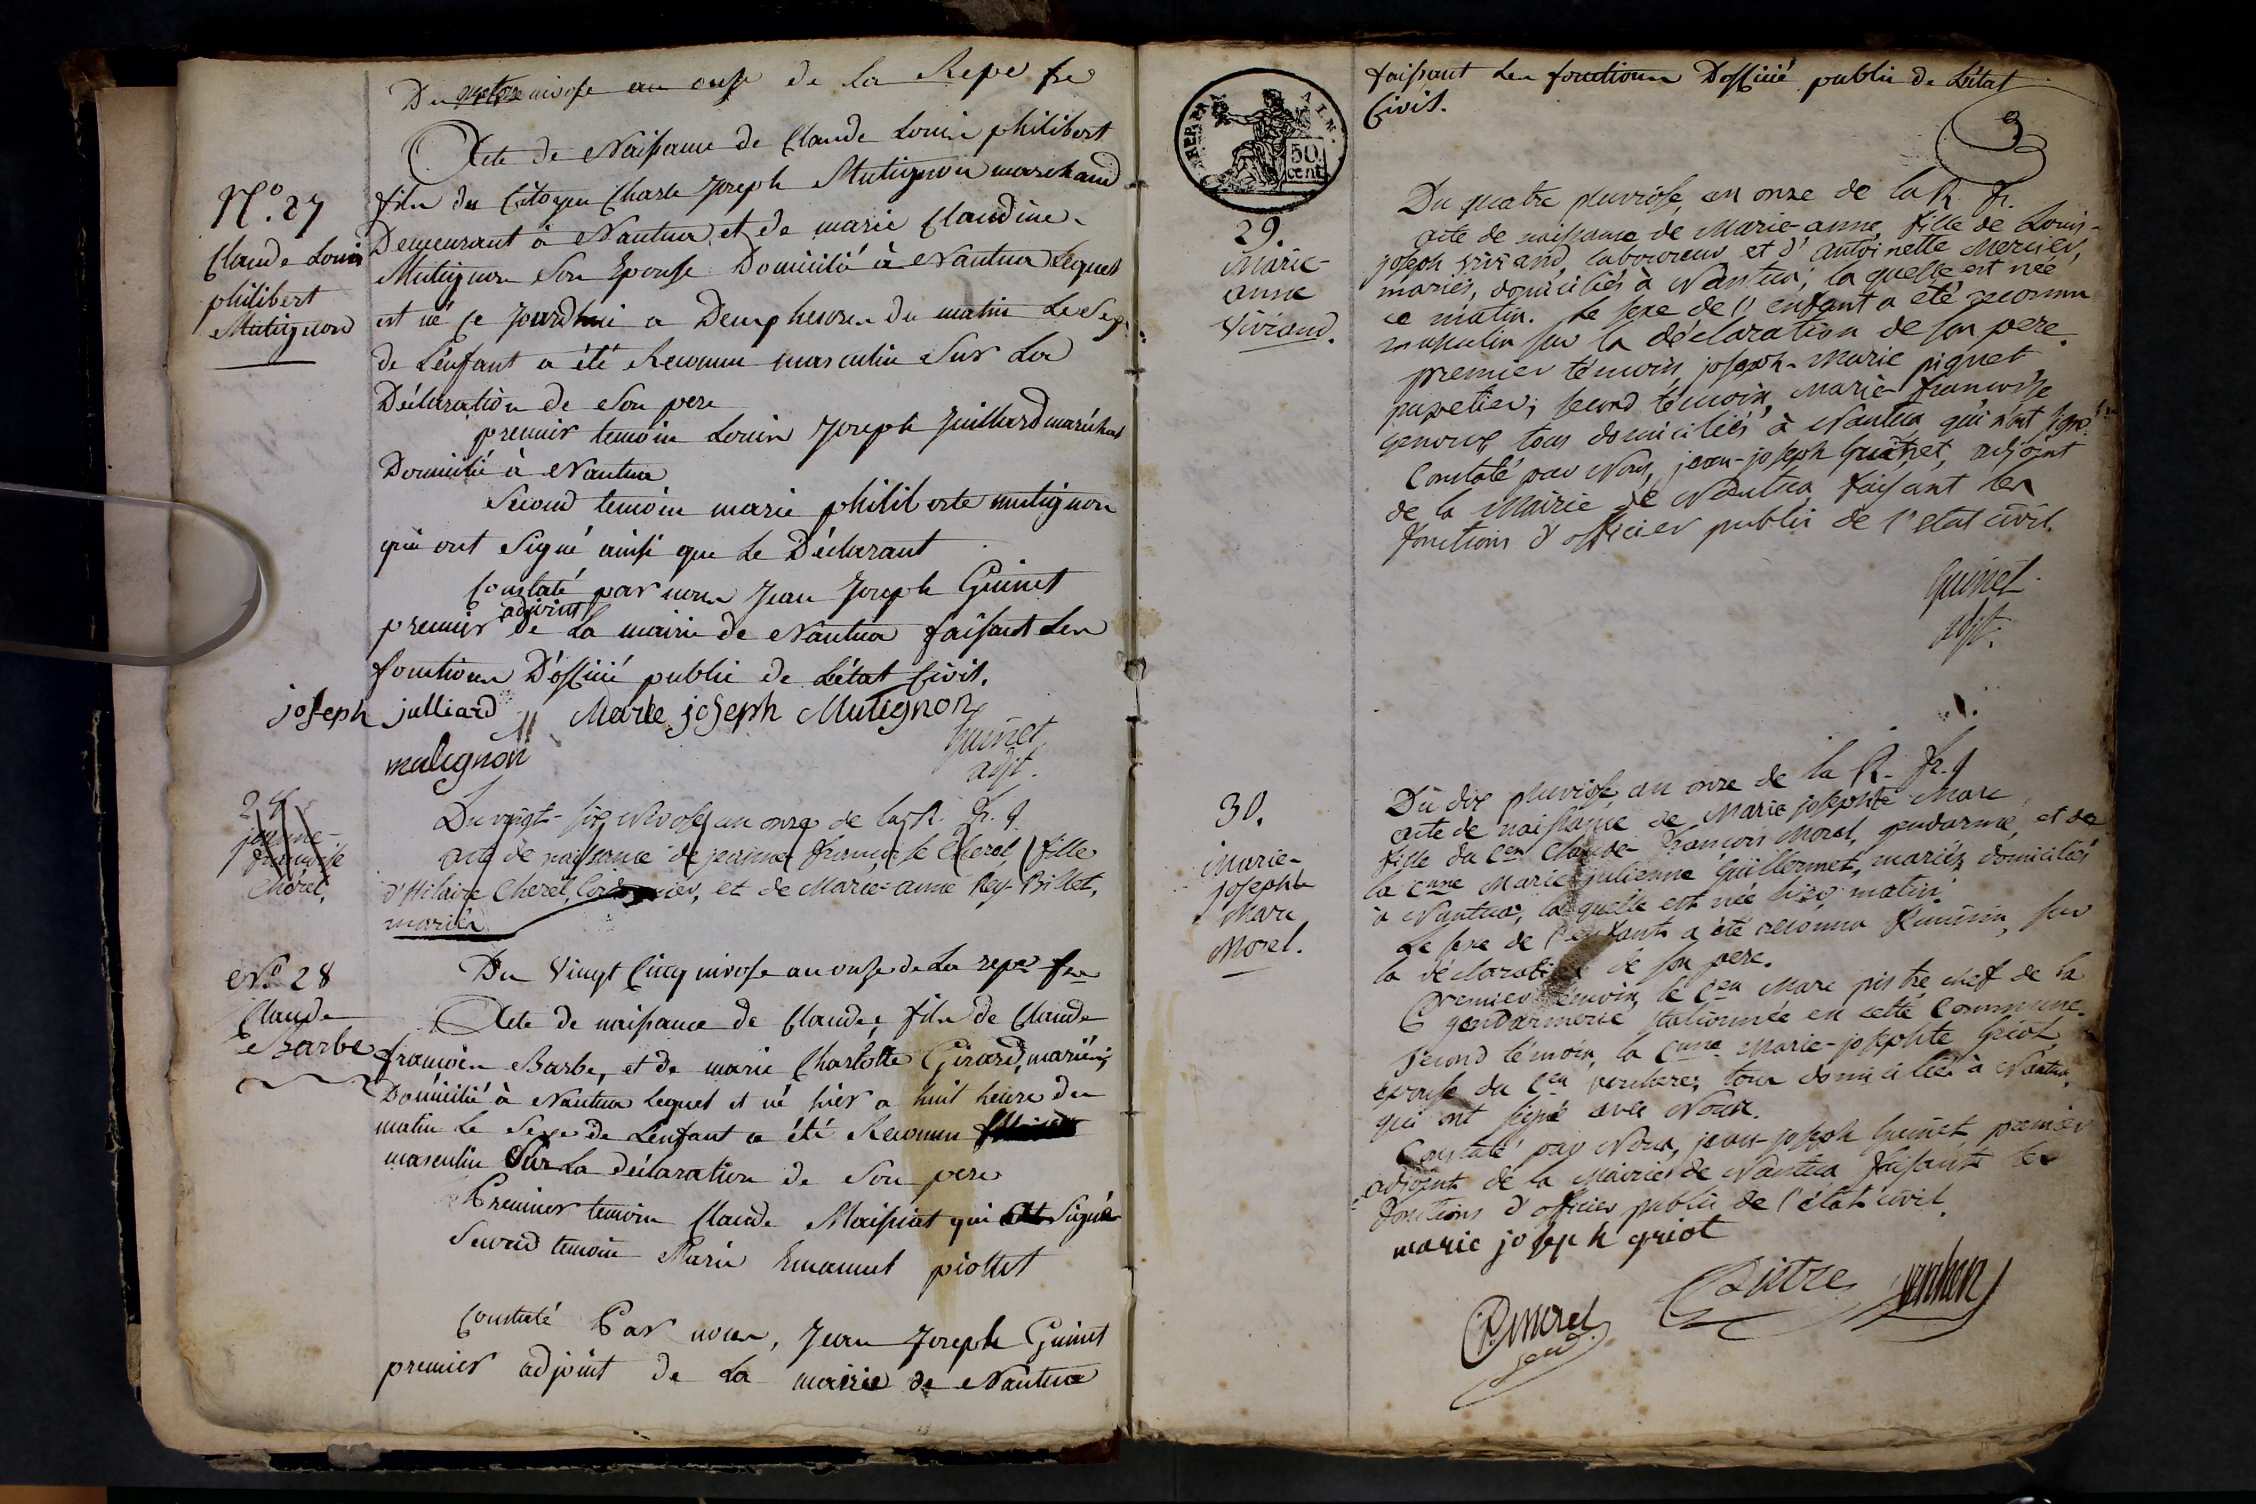 Du nivose an onse de la Repe fre
N°. 27
Claude Louis
philibert
Mutignon
Acte de Naissance de Claude Louis philibert
fils du Citoyen Charle Joseph Mutignon marchand
Demeurant à Nantua et de marie Claudine
Mutignon Son Epouse Domicilié à Nantua Lequel
est né ce jourdhui a Deux heures du matin Le Sex
de L'enfant a été Reconnu masculin Sur La
Déclaration de Son pere
premier temoin Louis Joseph Juilliard maréchal
Domicilié à Nantua
Second temoin marie philiberte mutignon
qui ont Signé ainsi que Le Déclarant
Constaté par nous Jean Joseph Guinet
premier adjoint de La mairie de Nantua faisant Les
fonctions D'officié public de L'état Civil.
joseph julliard Marie joseph Mutignon
mutignon Guinet
adjt.
jeanne-
françoise
Cherel.
Du vingt-six Nivose an onze de la R. fr.
acte de naissance de jeanne françoise Cherel fille
d'Hilaire Cherel, Cordonnier, et de Marie-anne Rey-Billet,
mariés
No. 28
Claude
Barbe
Du Vingt Cinq nivose an onse de La repe fre
Acte de naissance de Claude, fils de Claude
françois Barbe, et de marie Charlotte Girard, mariés,
Domicilié à Nantua Lequel et né hier a huit heure du
matin Le Sexe de L'enfant a été Reconnu
masculin Sur La déclaration de Son pere
Premier temoin Claude Maissiat qui Signé
Second temoin Marie Emanuel piottet
Constaté Par nous, Jean Joseph Guinet
premier adjoint de La mairie de Nantua
faisant Les fonctions D'officié public de L'état
Civil.
3
AIN.
50
cent
29.
Marie-
anne
Viviand.
Du quatre pluviose an onze de la R. fr.
acte de naissance de Marie-anne fille de Louis-
joseph Viviand laboureur et d'antoinette Mercier,
mariés, domiciliés à Nantua; la quelle est née
ce matin. Le sexe de l'enfant a été reconnu
masculin sur la déclaration de son pere.
premier témoin joseph-Marie piquet
papetier; second témoin, Marie-françoise
genoux tous domiciliés à Nantua qui n'ont signé
Constaté par Nous, jean-joseph Guinet, adjoint
de la Mairie de Nantua faisant les
fonctions d'officier public de l'etat civil.
Guinet
adjt.
30.
Marie-
josephte
Marc
Morel.
Du dix pluviose an onze de la R. fr.
acte de naissance de Marie josephte Marc
fille du Cen Claude-françois Morel, gendarme, et de
la Cenne Marie julienne Guillermet, mariés domiciliés
à Nantua, la quelle est née hier matin.
Le sexe de l'enfant a été reconnu feminin, sur
la déclaration de son pere.
Premier témoin, le Cen Marc pistre chef de la
gendarmerie stationnée en cette Commune.
second témoin, la Cenne Marie-josephte Griot,
epouse du Cen tous domiciliés à Nantua,
qui ont signé avec Nous.
Constaté par Nous, jean-joseph Guinet premier
adjoint de la Mairie de Nantua faisant les
fonctions d'officier public de l'état civil.
marie joseph griot
Pistre
morel